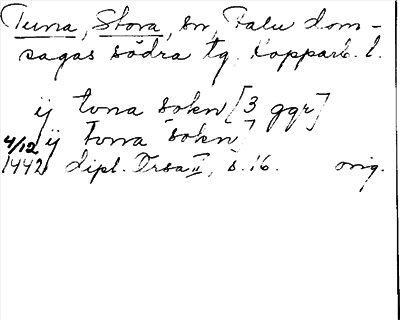 Tuna, Stora, sn, Falu dom-
sagas södra tg. Kopparb. l.
ij tvna sokn [3 ggr]
ij Tvna sokn]
4/12
1442 dipl. Trsa II, s. 16. orig.